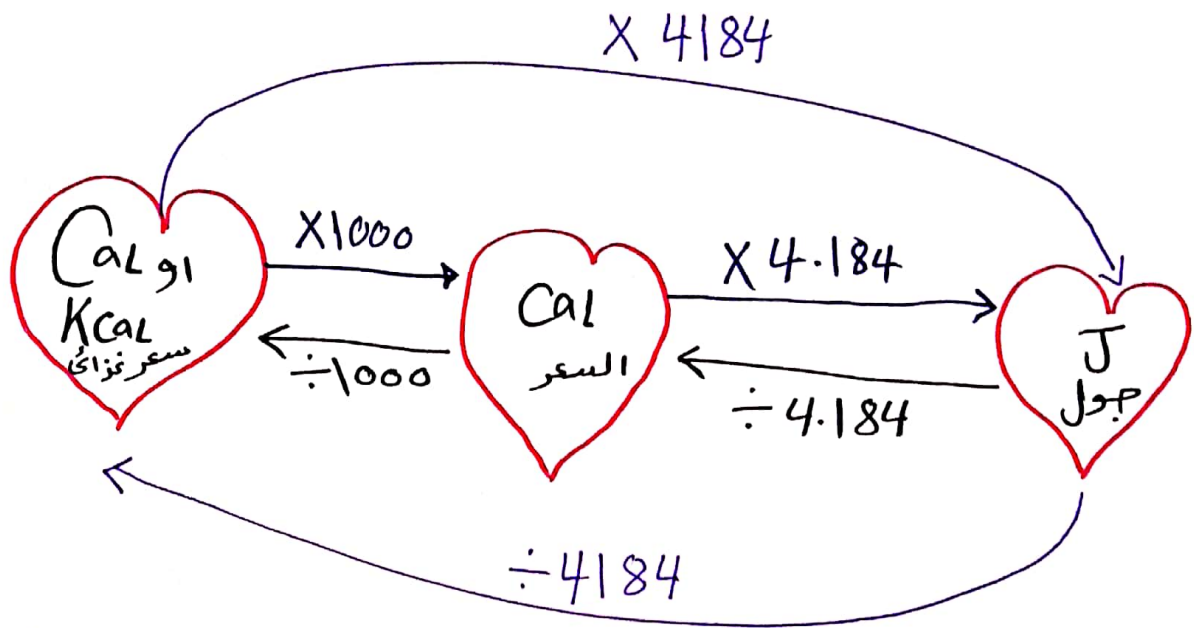 × 4184
Cal او
Kcal
سعر غزائي
×1000
÷1000
Cal
السعر
× 4.184
÷ 4.184
J
جول
÷4184